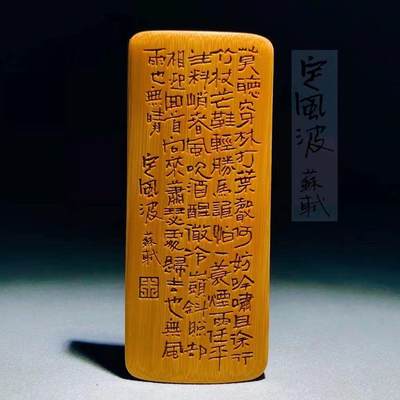 莫聽穿林打葉聲何妨吟嘯且徐行
竹杖芒鞋輕勝馬誰怕一蓑煙雨任平
生料峭春風吹酒醒微冷山頭斜照却
相迎回首向來蕭瑟處歸去也無風
雨也無晴 定風波 蘇軾
定風波 蘇軾